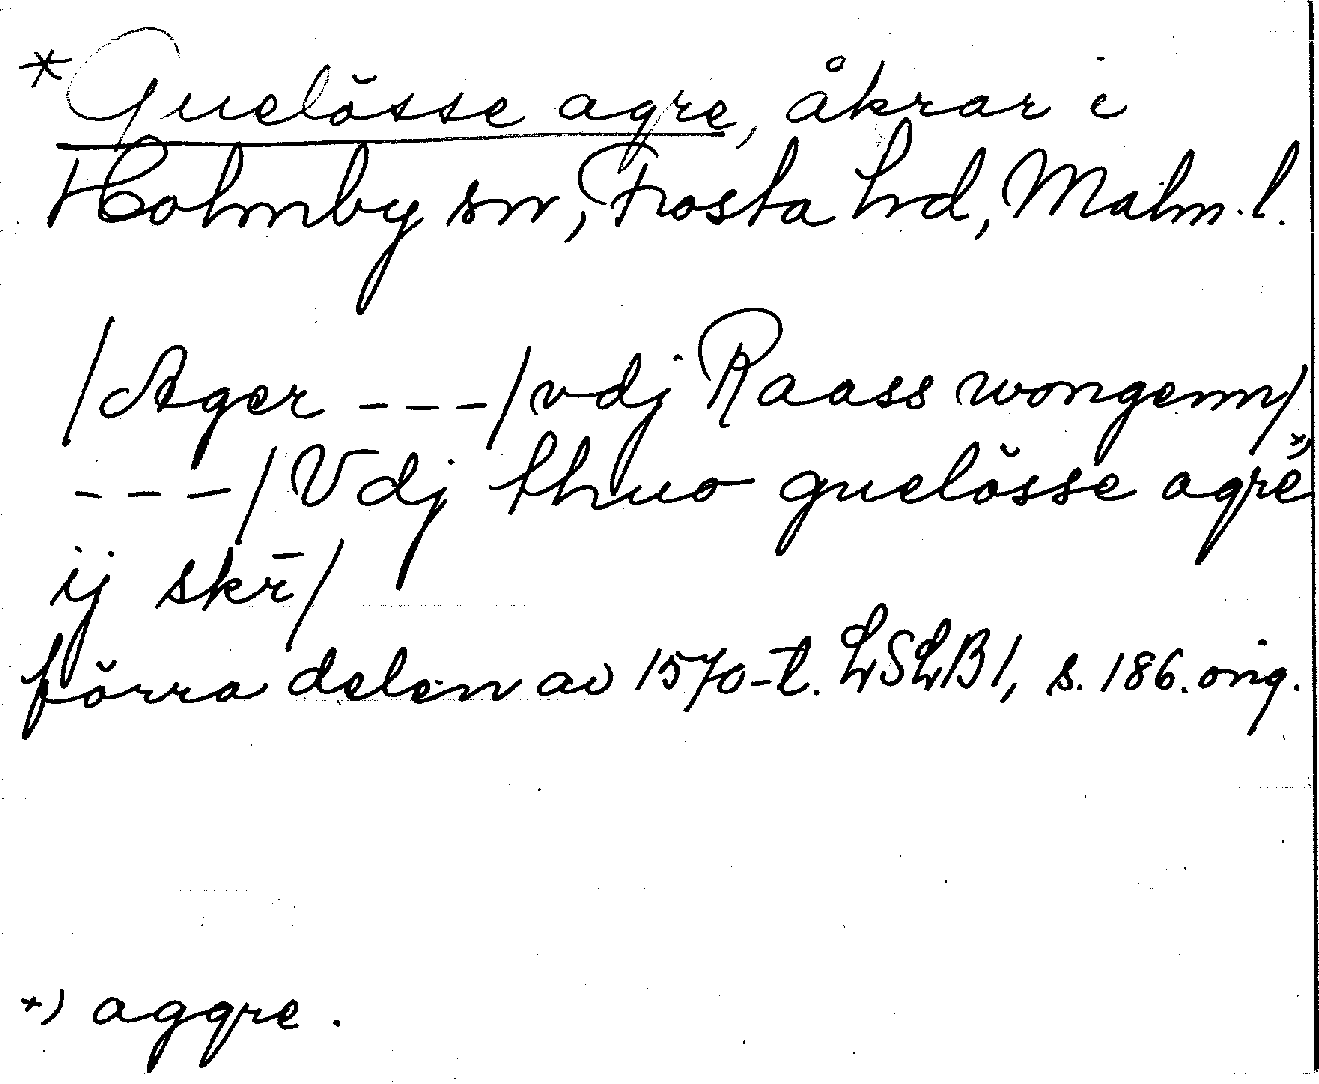 * Guelösse agre, åkrar i
Holmby sn, Frosta hd, Malm. l.
/Ager - - - / vdj Raass wongenn/,
- - - / Vdj thuo guelösse agre *)
ij skr̄/
förra delen av 1570-t. LSLB 1, s. 186. orig.
*) aggre.